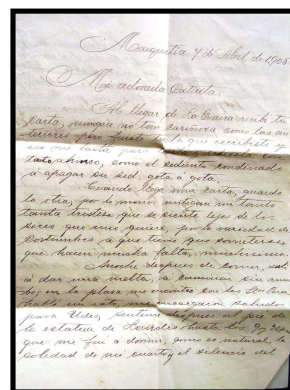 Maiquetia 7 de Abril de 1906
Mi adorada Catita:
Al llegar de La Guaira recibí tu
carta, aunque no tan cariñosa como las an-
teriores pero fuiste tú la que escribiste y
eso me basta para
como el sediento condenado
á apagar su sed, gota á gota.
Cuando llega una carta, guardo
la otra, por lo menos mitigan un tanto
tanta tristeza que se siente lejos de los
seres que uno quiere, por la variedad de
costumbres á que tiene que someterse
que hacen mucha falta, muchísimo.
Anoche después de comer, salí
á dar una vuelta, á caminar sin rum-
bo, en la plaza me encontré con las
un rato, me encargaron saludos
para Udes, sentéme después al pie de
la estatua de Lourdes hasta las 9 y
que me fui a dormir, como es natural, la
soledad de mi cuarto, el silencio del